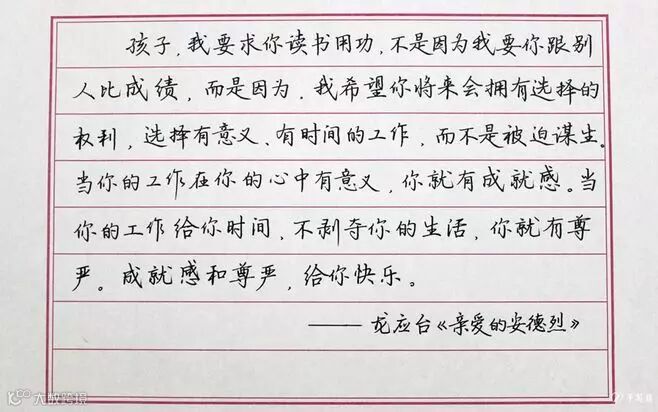 孩子,我要求你读书用功,不是因为我要你跟别
人比成绩,而是因为,我希望你将来会拥有选择的
权利,选择有意义、有时间的工作,而不是被迫谋生。
当你的工作在你的心中有意义,你就有成就感。当
你的工作给你时间,不剥夺你的生活,你就有尊
严。成就感和尊严,给你快乐。
—— 龙应台《亲爱的安德烈》
大数跨境